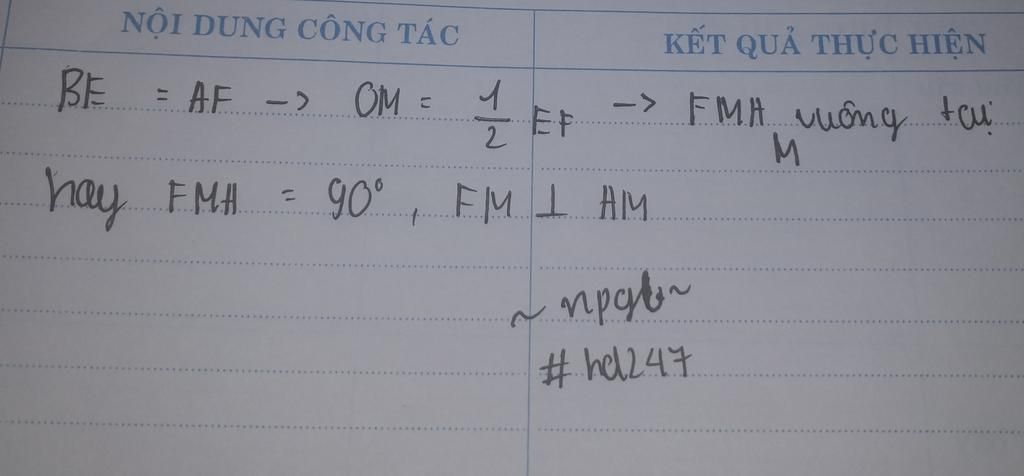 NỘI DUNG CÔNG TÁC
KẾT QUẢ THỰC HIỆN
BE = AF -> OM = 1/2 EF -> FMA vuông tại M
hay FMA = 90°, FM ⊥ AM
~ npgb~
#hd247